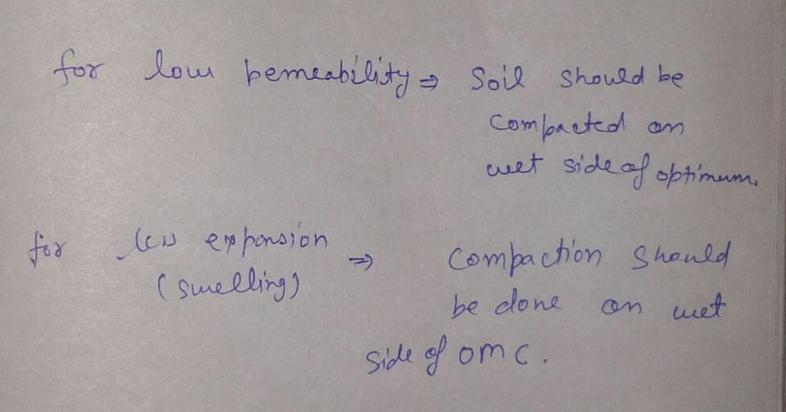 for low permeability ⇒ Soil should be
compacted on
wet side of optimum.
for less expansion ⇒ Compaction should
(swelling) be done on wet
side of OMC.